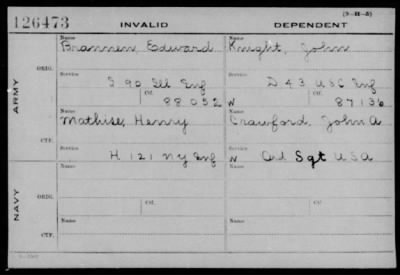 (3-H-5)
126473 INVALID DEPENDENT
ARMY
ORIG.
Name
Brannen, Edward
Name
Knight, John
Service
I 90 Ill Inf
Service
D 43 USC Inf
Ctf.
88052
Ctf.
W 87136
CTF.
Name
Mathise, Henry
Name
Crawford, John A
Service
H 121 NY Inf
Service
W Ord Sgt USA
NAVY
ORIG.
Name
Name
Service
Ctf.
Service
Ctf.
CTF.
Name
Name